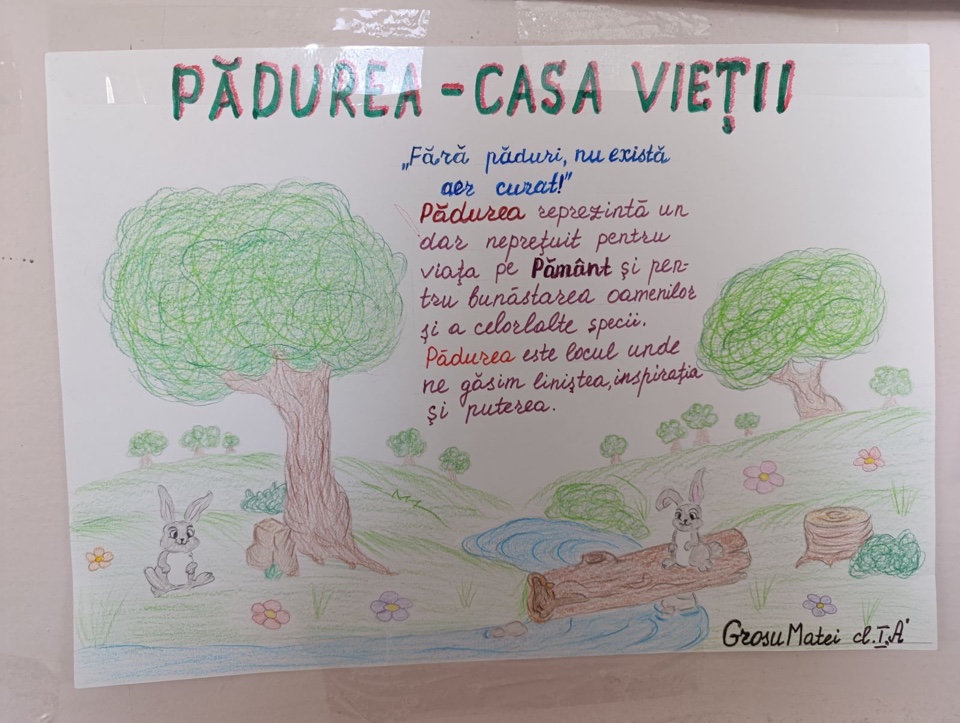 PĂDUREA - CASA VIEȚII
„Fără păduri, nu există
aer curat!"
Pădurea reprezintă un
dar neprețuit pentru
viața pe Pământ și pen-
tru bunăstarea oamenilor
și a celorlalte specii.
Pădurea este locul unde
ne găsim liniștea, inspirația
și puterea.
Grosu Matei cl. I „A"